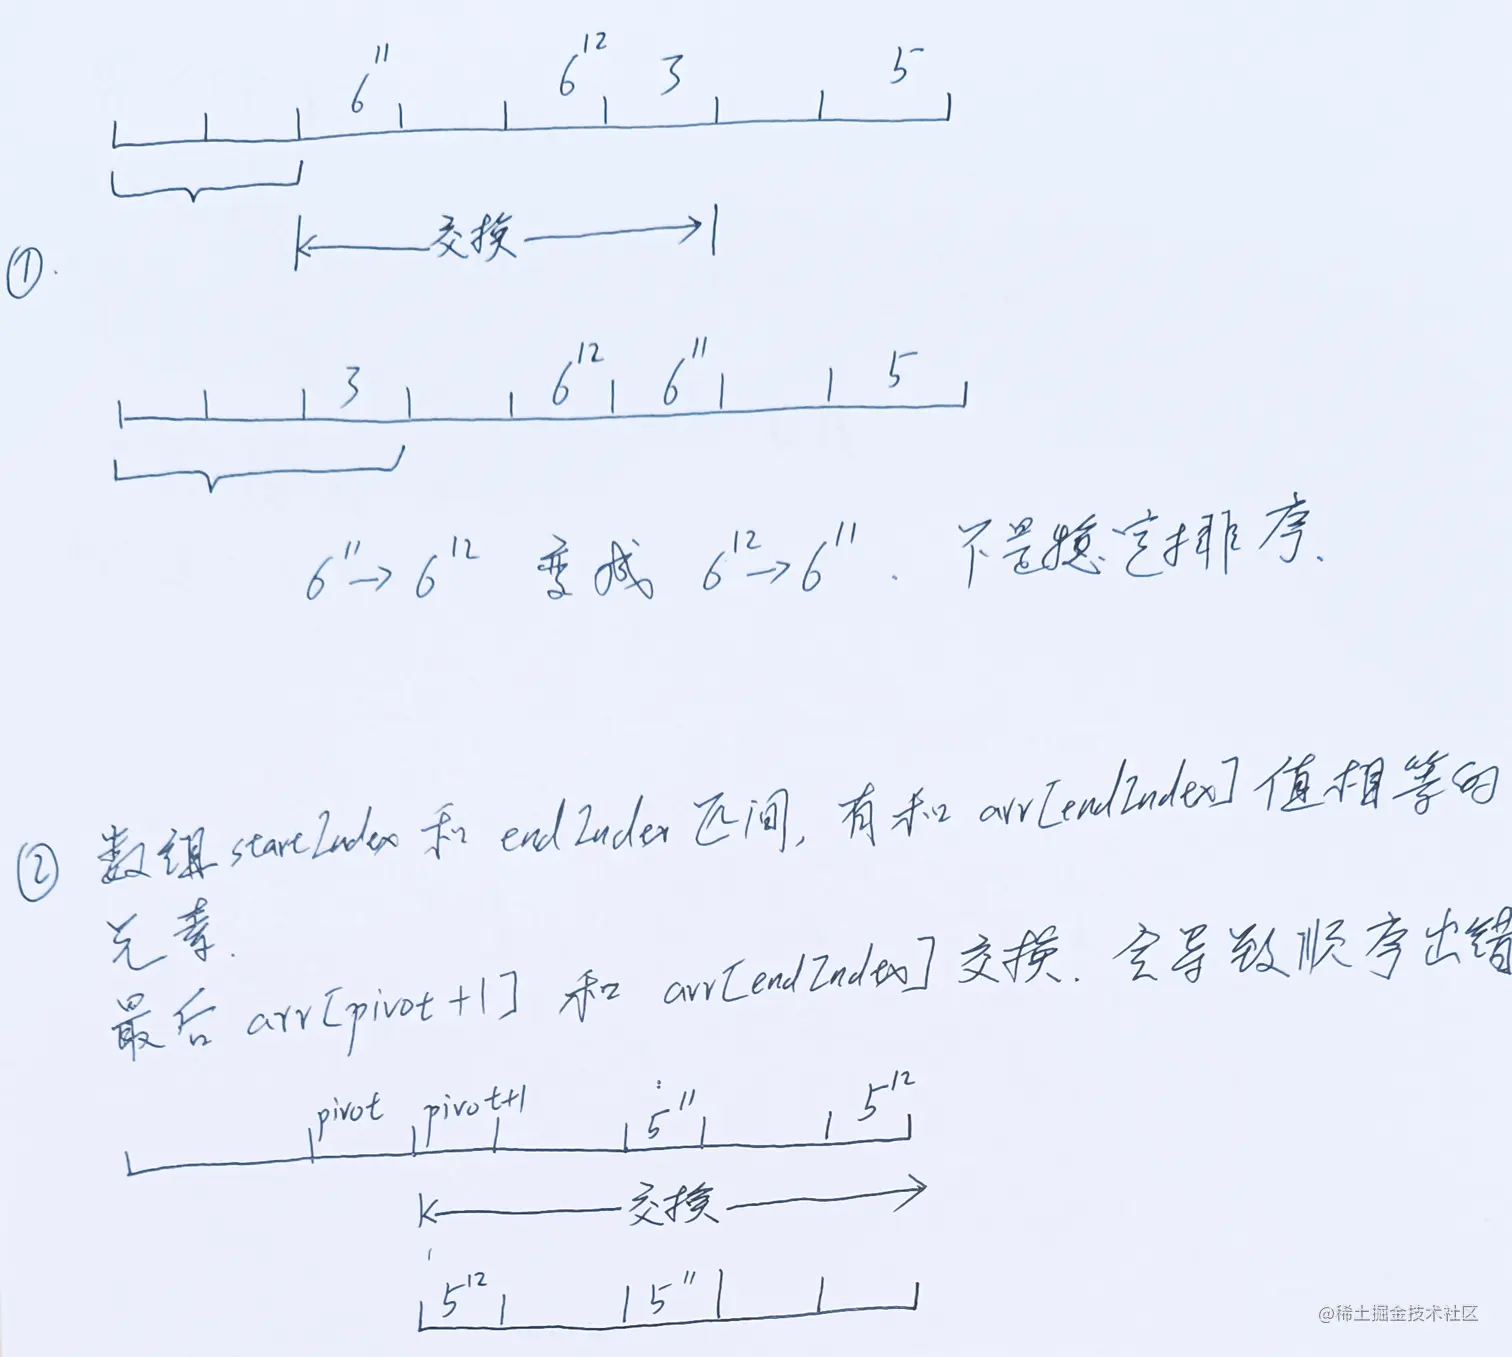 6¹¹ 6¹² 3 5
交换
①.
3 6¹² 6¹¹ 5
6¹¹→6¹² 变成 6¹²→6¹¹. 不是稳定排序.
② 数组startIndex 和 endIndex 区间, 有和 arr[endIndex] 值相等的
元素.
最后 arr[pivot+1] 和 arr[endIndex] 交换. 会导致顺序出错
pivot pivot+1 5¹¹ 5¹²
交换
5¹² 5¹¹
@稀土掘金技术社区